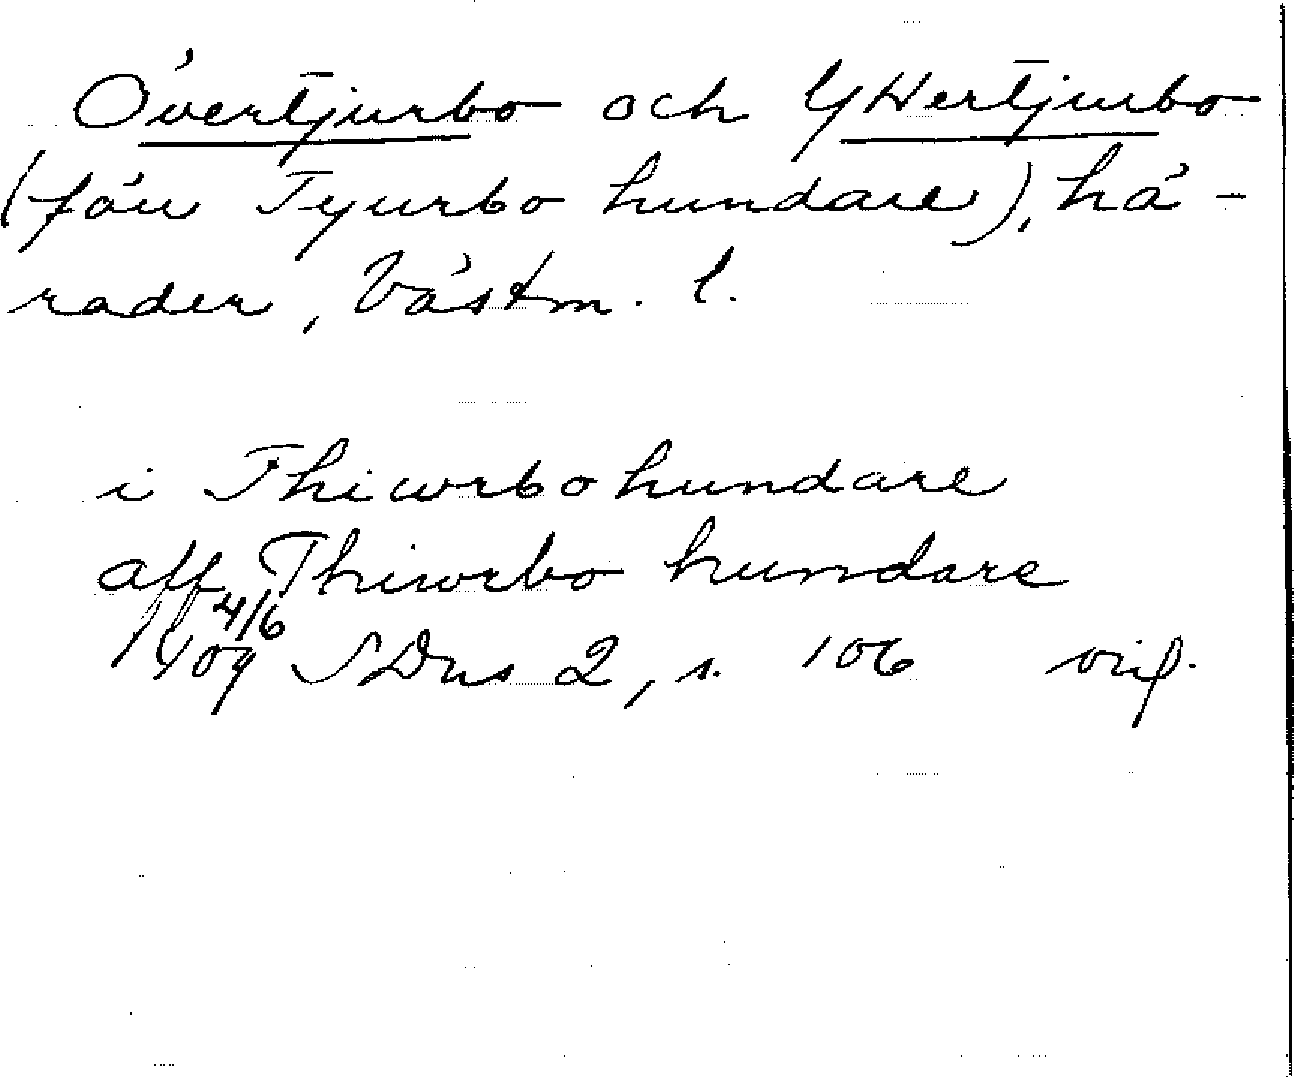 Övertjurbo och Yttertjurbo
(förr Tjurbo hundare), hä-
rader, Västm. l.
i Thiwrbo hundare
aff Thiwrbo hundare
4/6
1409 SDns 2, s. 106 orig.